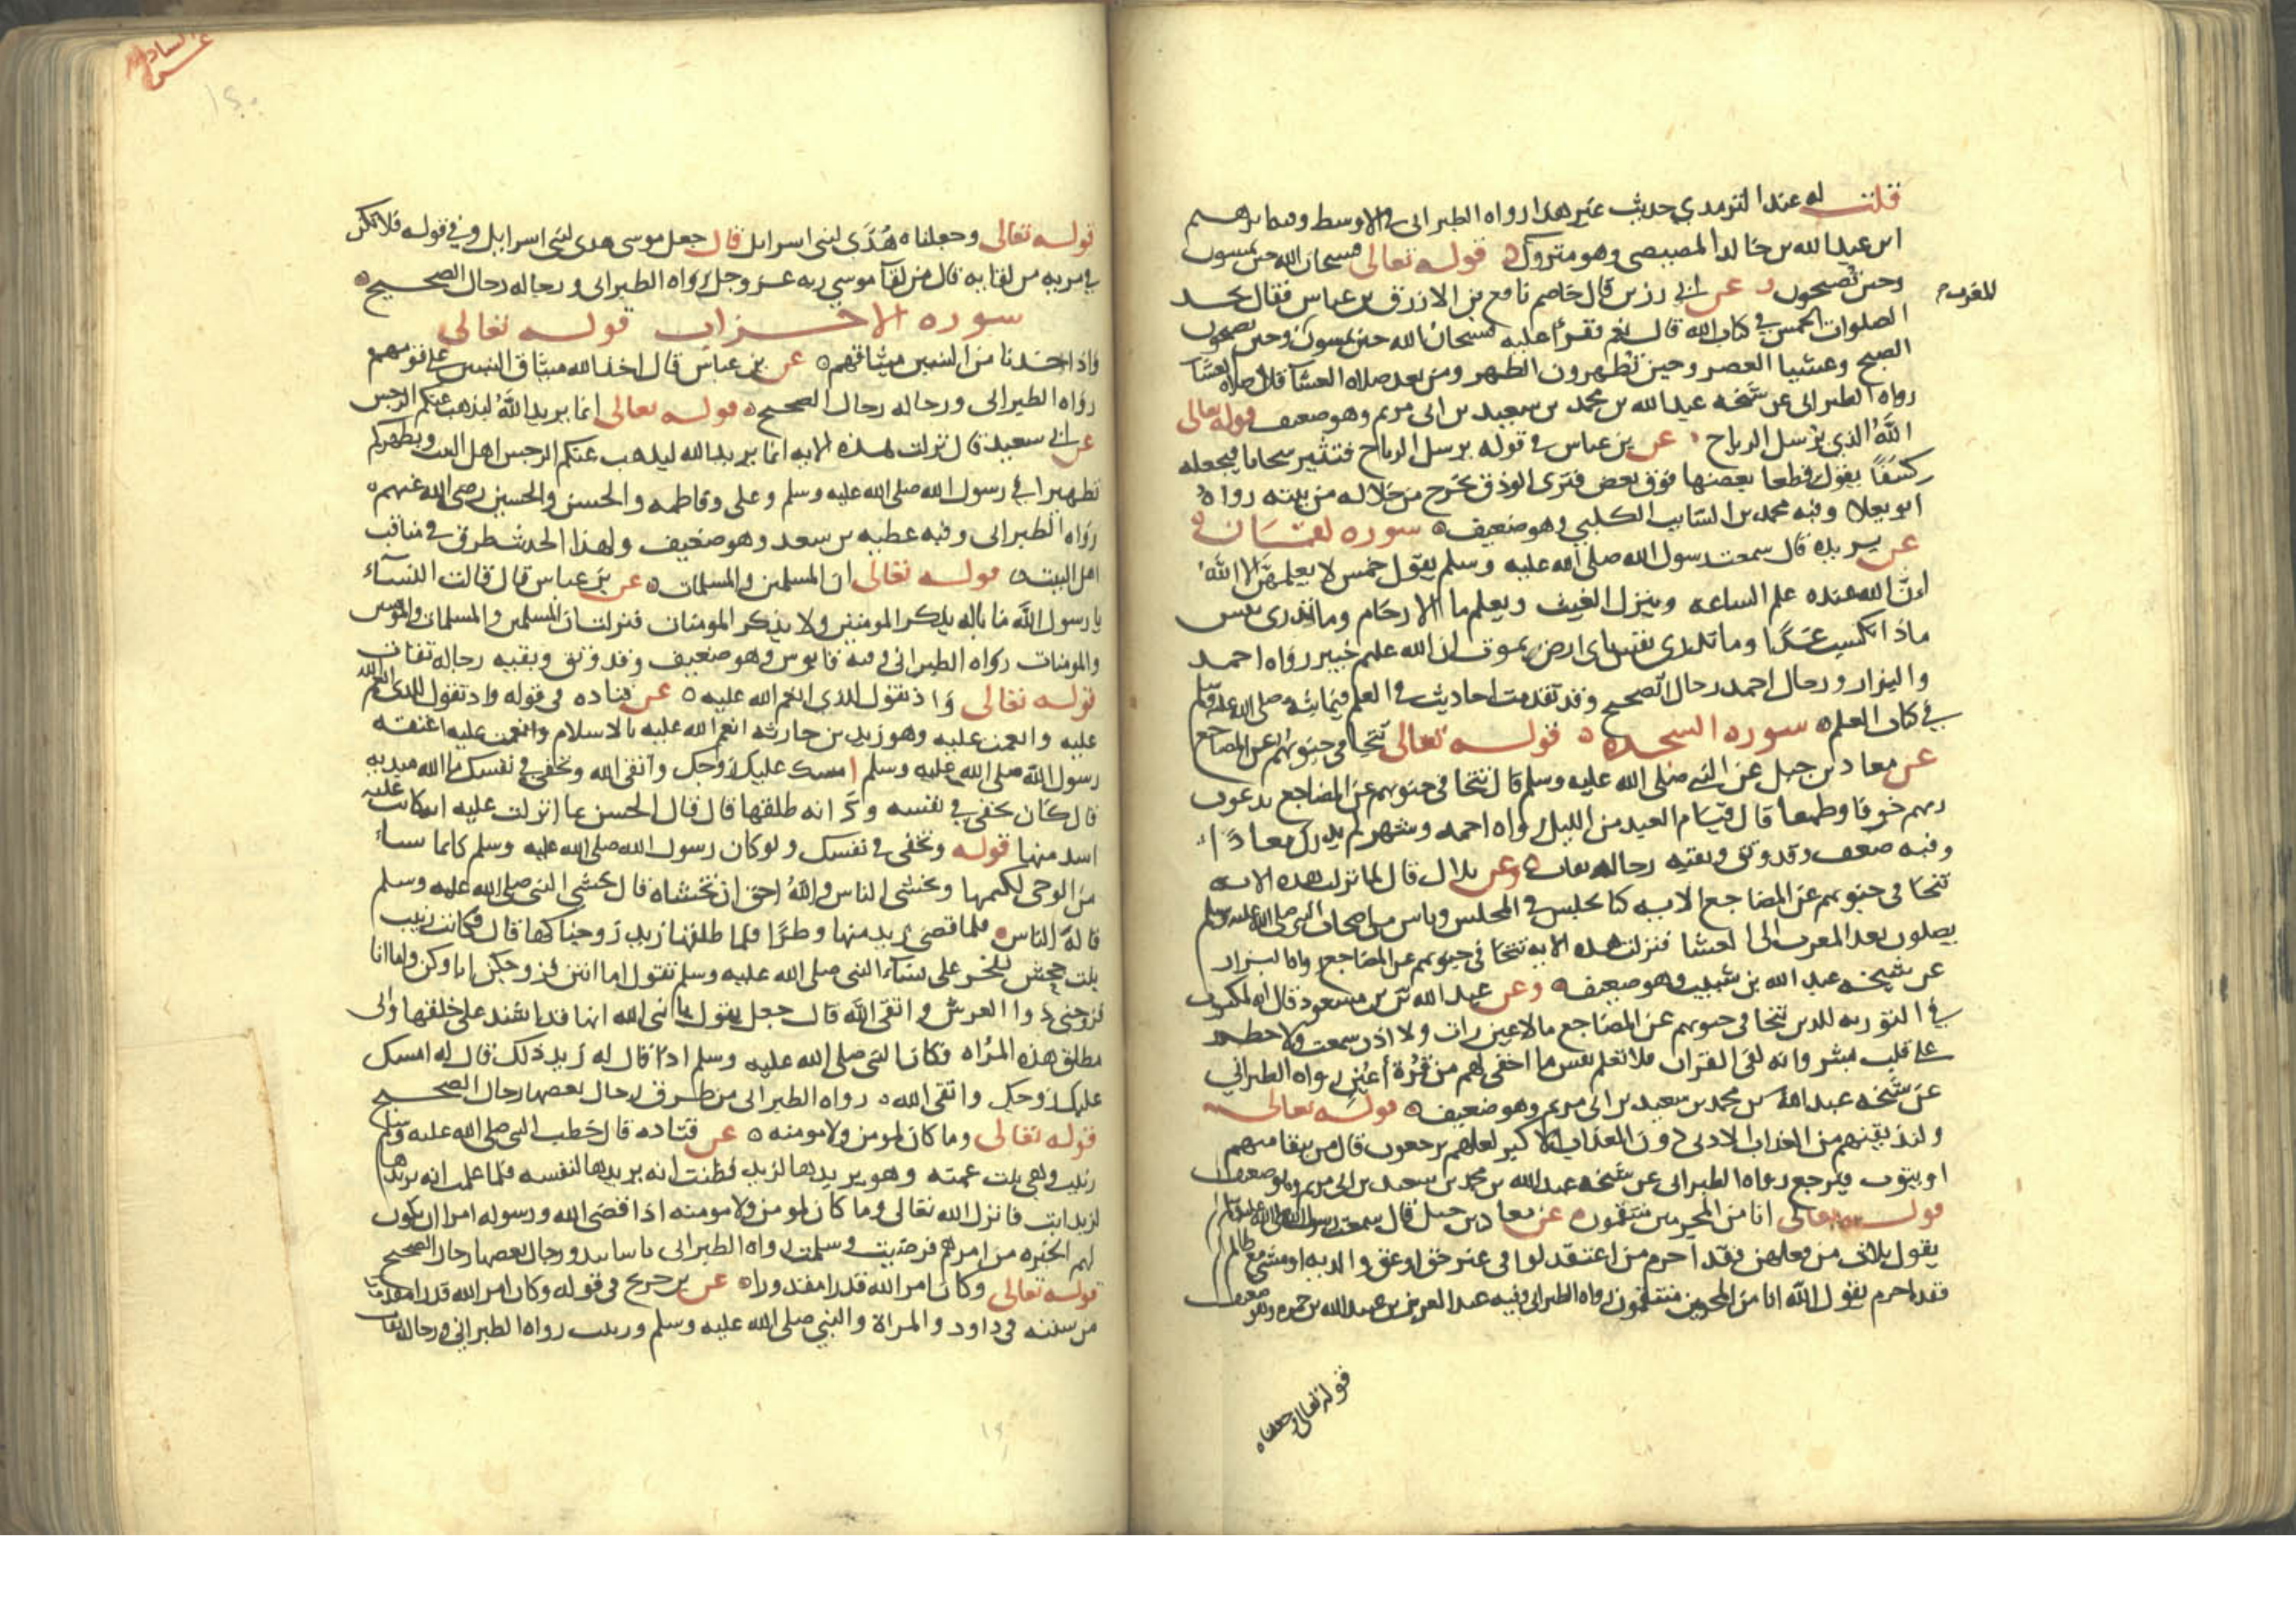 قلت له عند الترمذي حديث غير هذا رواه الطبراني في الاوسط وفيه ابرهيم
ابن عبد الله بن خالد المصيصي وهو متروك قوله تعالى فسبحان الله حين تمسون
وحين تصبحون عن ابي رزين قال خاصم نافع بن الازرق بن عباس فقال تجد
للمغرب
الصلوات الخمس في كتاب الله قال نعم فقرا عليه فسبحان الله حين تمسون وحين تصبحون
الصبح وعشيا العصر وحين تظهرون الظهر ومن بعد صلاه العشا قال صلاه العشا
رواه الطبراني عن شيخه عبد الله بن محمد بن سعيد بن ابي مريم وهو ضعيف قوله تعالى
الله الذي يرسل الرياح عن بن عباس في قوله يرسل الرياح فتثير سحابا فيجعله
كسفا يقول قطعا بعضها فوق بعض فترى الودق يخرج من خلاله من بينه رواه
ابو يعلا وفيه محمد بن السايب الكلبي وهو ضعيف سوره لقمان
عن بريده قال سمعت رسول الله صلى الله عليه وسلم يقول خمس لا يعلمهن الا الله
ان الله عنده علم الساعه وينزل الغيث ويعلم ما في الارحام وما تدري نفس
ماذا تكسب غدا وما تدري نفس باي ارض تموت ان الله عليم خبير رواه احمد
والبزار ورجال احمد رجال الصحيح وقد تقدمت احاديث في العلم
في كتاب العلم سوره السجده قوله تعالى تتجافى جنوبهم عن المضاجع
عن معاد بن جبل عن النبي صلى الله عليه وسلم قال تتجافى جنوبهم عن المضاجع يدعون
ربهم خوفا وطمعا قال قيام العبد من الليل رواه احمد وشهر لم يدرك معادا
وفيه ضعف وقد وثق وبقيه رجاله ثقات وعن بلال قال لما نزلت هذه الايه
تتجافى جنوبهم عن المضاجع الايه كنا نجلس في المجلس وناس من اصحاب النبي صلى الله عليه وسلم
يصلون بعد المغرب الى العشا فنزلت هذه الايه تتجافى جنوبهم عن المضاجع رواه البزار
عن شيخه عبد الله بن شبيب وهو ضعيف وعن عبد الله بن مسعود قال انه لمكتوب
في التوريه للدين تتجافى جنوبهم عن المضاجع مالا عين رات ولا ادن سمعت ولا خطر
على قلب بشر وانه لفي القران فلا تعلم نفس ما اخفي لهم من قرة أعين رواه الطبراني
عن شيخه عبد الله بن محمد بن سعيد بن ابي مريم وهو ضعيف قوله تعالى
ولنذيقنهم من العذاب الادنى دون العذاب الاكبر لعلهم يرجعون قال من يبقا منهم
او يتوب فيرجع رواه الطبراني عن شيخه عبد الله بن محمد بن سعيد بن ابي مريم وهو ضعيف
قوله تعالى انا من المجرمين منتقمون عن معاد بن جبل قال سمعت رسول الله صلى الله عليه وسلم
يقول ثلاث من فعلهن فقد اجرم من اعتقد لوا في غير حق او عق والديه او مشى مع ظالم
فقد اجرم يقول الله انا من المجرمين منتقمون رواه الطبراني وفيه عبد العزيز بن عبيد الله بن حمزه وهو ضعيف
قوله تعالى وجعلناه
قوله تعالى وجعلناه هُدًى لبني اسرايل قال جعل موسى هدى لبني اسرايل وفي قوله فلا تكن
في مريه من لقايه قال من لقآ موسى ربه عز وجل رواه الطبراني ورجاله رجال الصحيح
سوره الاحزاب قوله تعالى
واذ اخذنا من النبيين ميثاقهم عن بن عباس قال اخذ الله ميثاق النبيين على قومهم
رواه الطبراني ورجاله رجال الصحيح قوله تعالى انما يريد الله ليذهب عنكم الرجس
عن ابي سعيد قال نزلت هذه الايه انما يريد الله ليذهب عنكم الرجس اهل البيت ويطهركم
تطهيرا في رسول الله صلى الله عليه وسلم وعلي وفاطمه والحسن والحسين رضي الله عنهم
رواه الطبراني وفيه عطيه بن سعد وهو ضعيف ولهذا الحديث طرق في مناقب
اهل البيت قوله تعالى ان المسلمين والمسلمات عن بن عباس قال قالت النسآء
يا رسول الله ما باله يذكر المومنين ولا يذكر المومنات فنزلت ان المسلمين والمسلمات والمومنين
والمومنات رواه الطبراني وفيه قابوس وهو ضعيف وقد وثق وبقيه رجاله ثقات
قوله تعالى واذ تقول للذي انعم الله عليه عن قتاده في قوله واذ تقول للذي انعم الله
عليه وانعمت عليه وهو زيد بن حارثه انعم الله عليه بالاسلام وانعمت عليه اعتقه
رسول الله صلى الله عليه وسلم امسك عليك زوجك واتقى الله وتخفي في نفسك ما الله مبديه
قال كان يخفي في نفسه ود انه طلقها قال قال الحسن ما انزلت عليه ايه كانت عليه
اشد منها قوله وتخفي في نفسك ولو كان رسول الله صلى الله عليه وسلم كاتما شيئا
من الوحي لكتمها وتخشى الناس والله احق ان تخشاه قال خشي النبي صلى الله عليه وسلم
قالة الناس فلما قضى زيد منها وطرا فلما طلقها زيد زوجناكها قال فكانت زينب
بنت جحش تفخر على نسآء النبي صلى الله عليه وسلم تقول اما انتن فزوجكن اباوكن واما انا
فزوجني ذوا العرش واتقى الله قال جعل يقول يا نبي الله انها قد اشتد على خلقها واني
مطلق هذه المراه فكان النبي صلى الله عليه وسلم اذا قال له زيد ذلك قال له امسك
عليك زوجك واتقى الله رواه الطبراني من طرق رجال بعضها رجال الصحيح
قوله تعالى وما كان لمومن ولا مومنه عن قتاده قال خطب النبي صلى الله عليه وسلم
زينب وهي بنت عمته وهو يريدها لزيد فظنت انه يريدها لنفسه فلما علمت انه يريدها
لزيد ابت فانزل الله تعالى وما كان لمومن ولا مومنه اذا قضى الله ورسوله امرا ان تكون
لهم الخيره من امرهم فرضيت وسلمت رواه الطبراني باسانيد ورجال بعضها رجال الصحيح
قوله تعالى وكان امر الله قدرا مقدورا عن بن جريج في قوله وكان امر الله قدرا مقدورا
من سنته في داود والمراة والنبي صلى الله عليه وسلم وزينب رواه الطبراني ورجاله ثقات